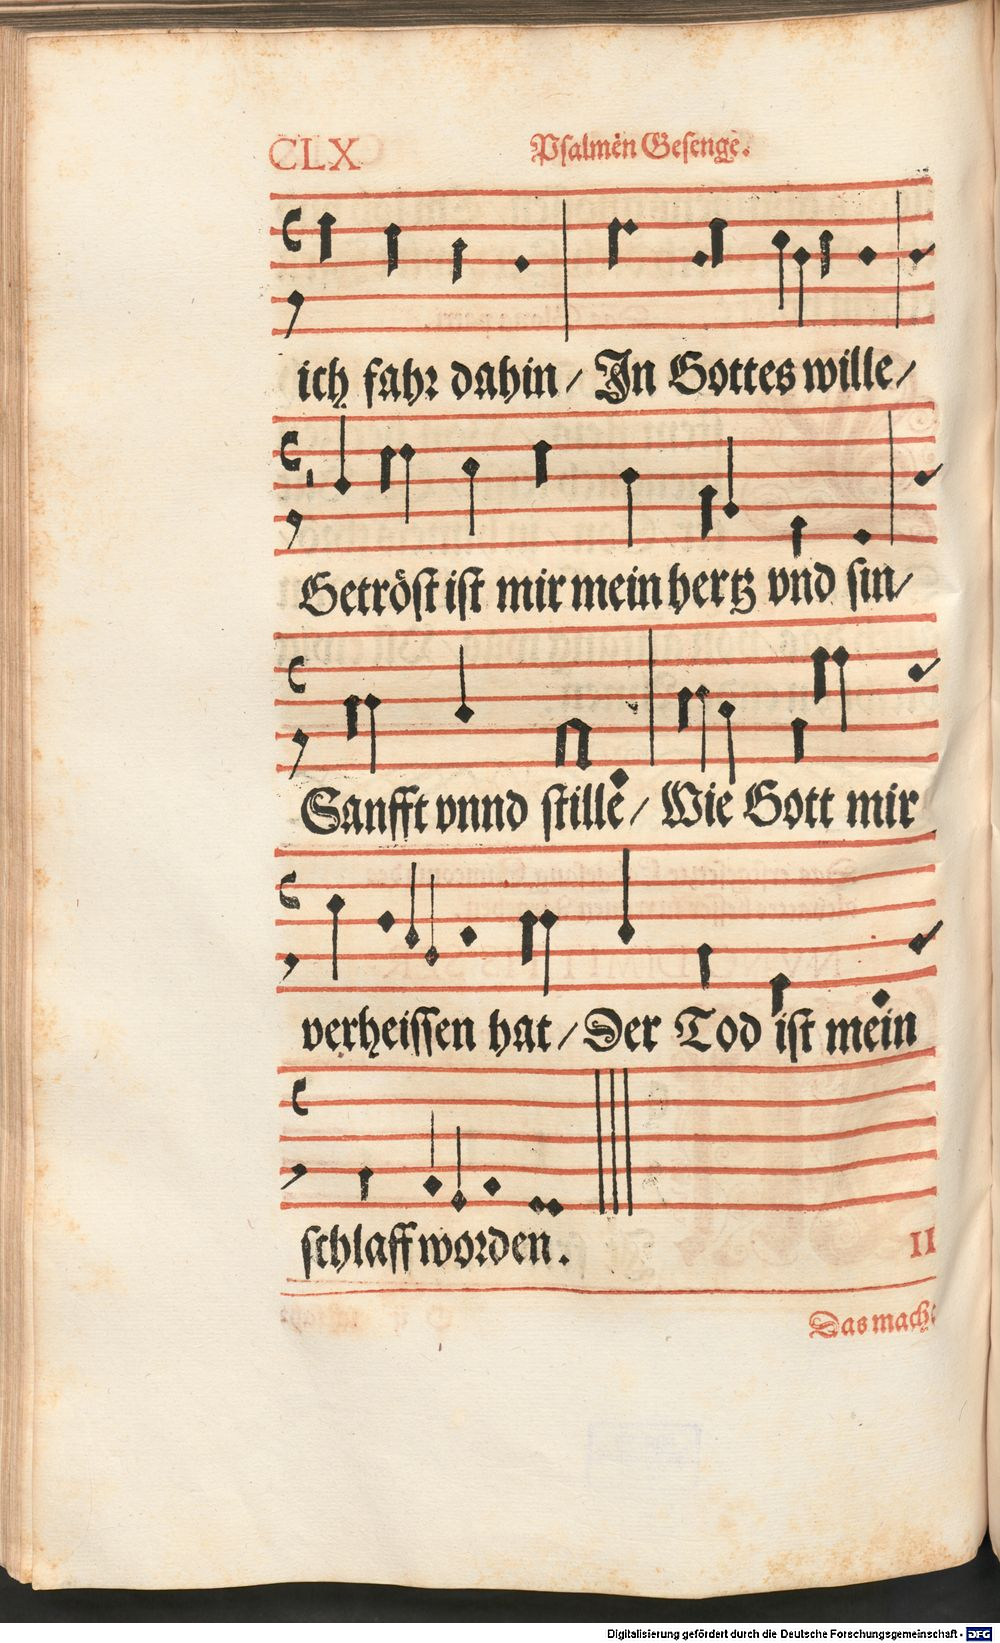 CLX
Psalmen Gesenge.
ich fahr dahin / In Gottes wille /
Getröst ist mir mein hertz vnd sin /
Sanfft vnnd stille / Wie Gott mir
verheissen hat / Der Tod ist mein
schlaff worden.
II
Das mach
Digitalisierung gefördert durch die Deutsche Forschungsgemeinschaft - DFG